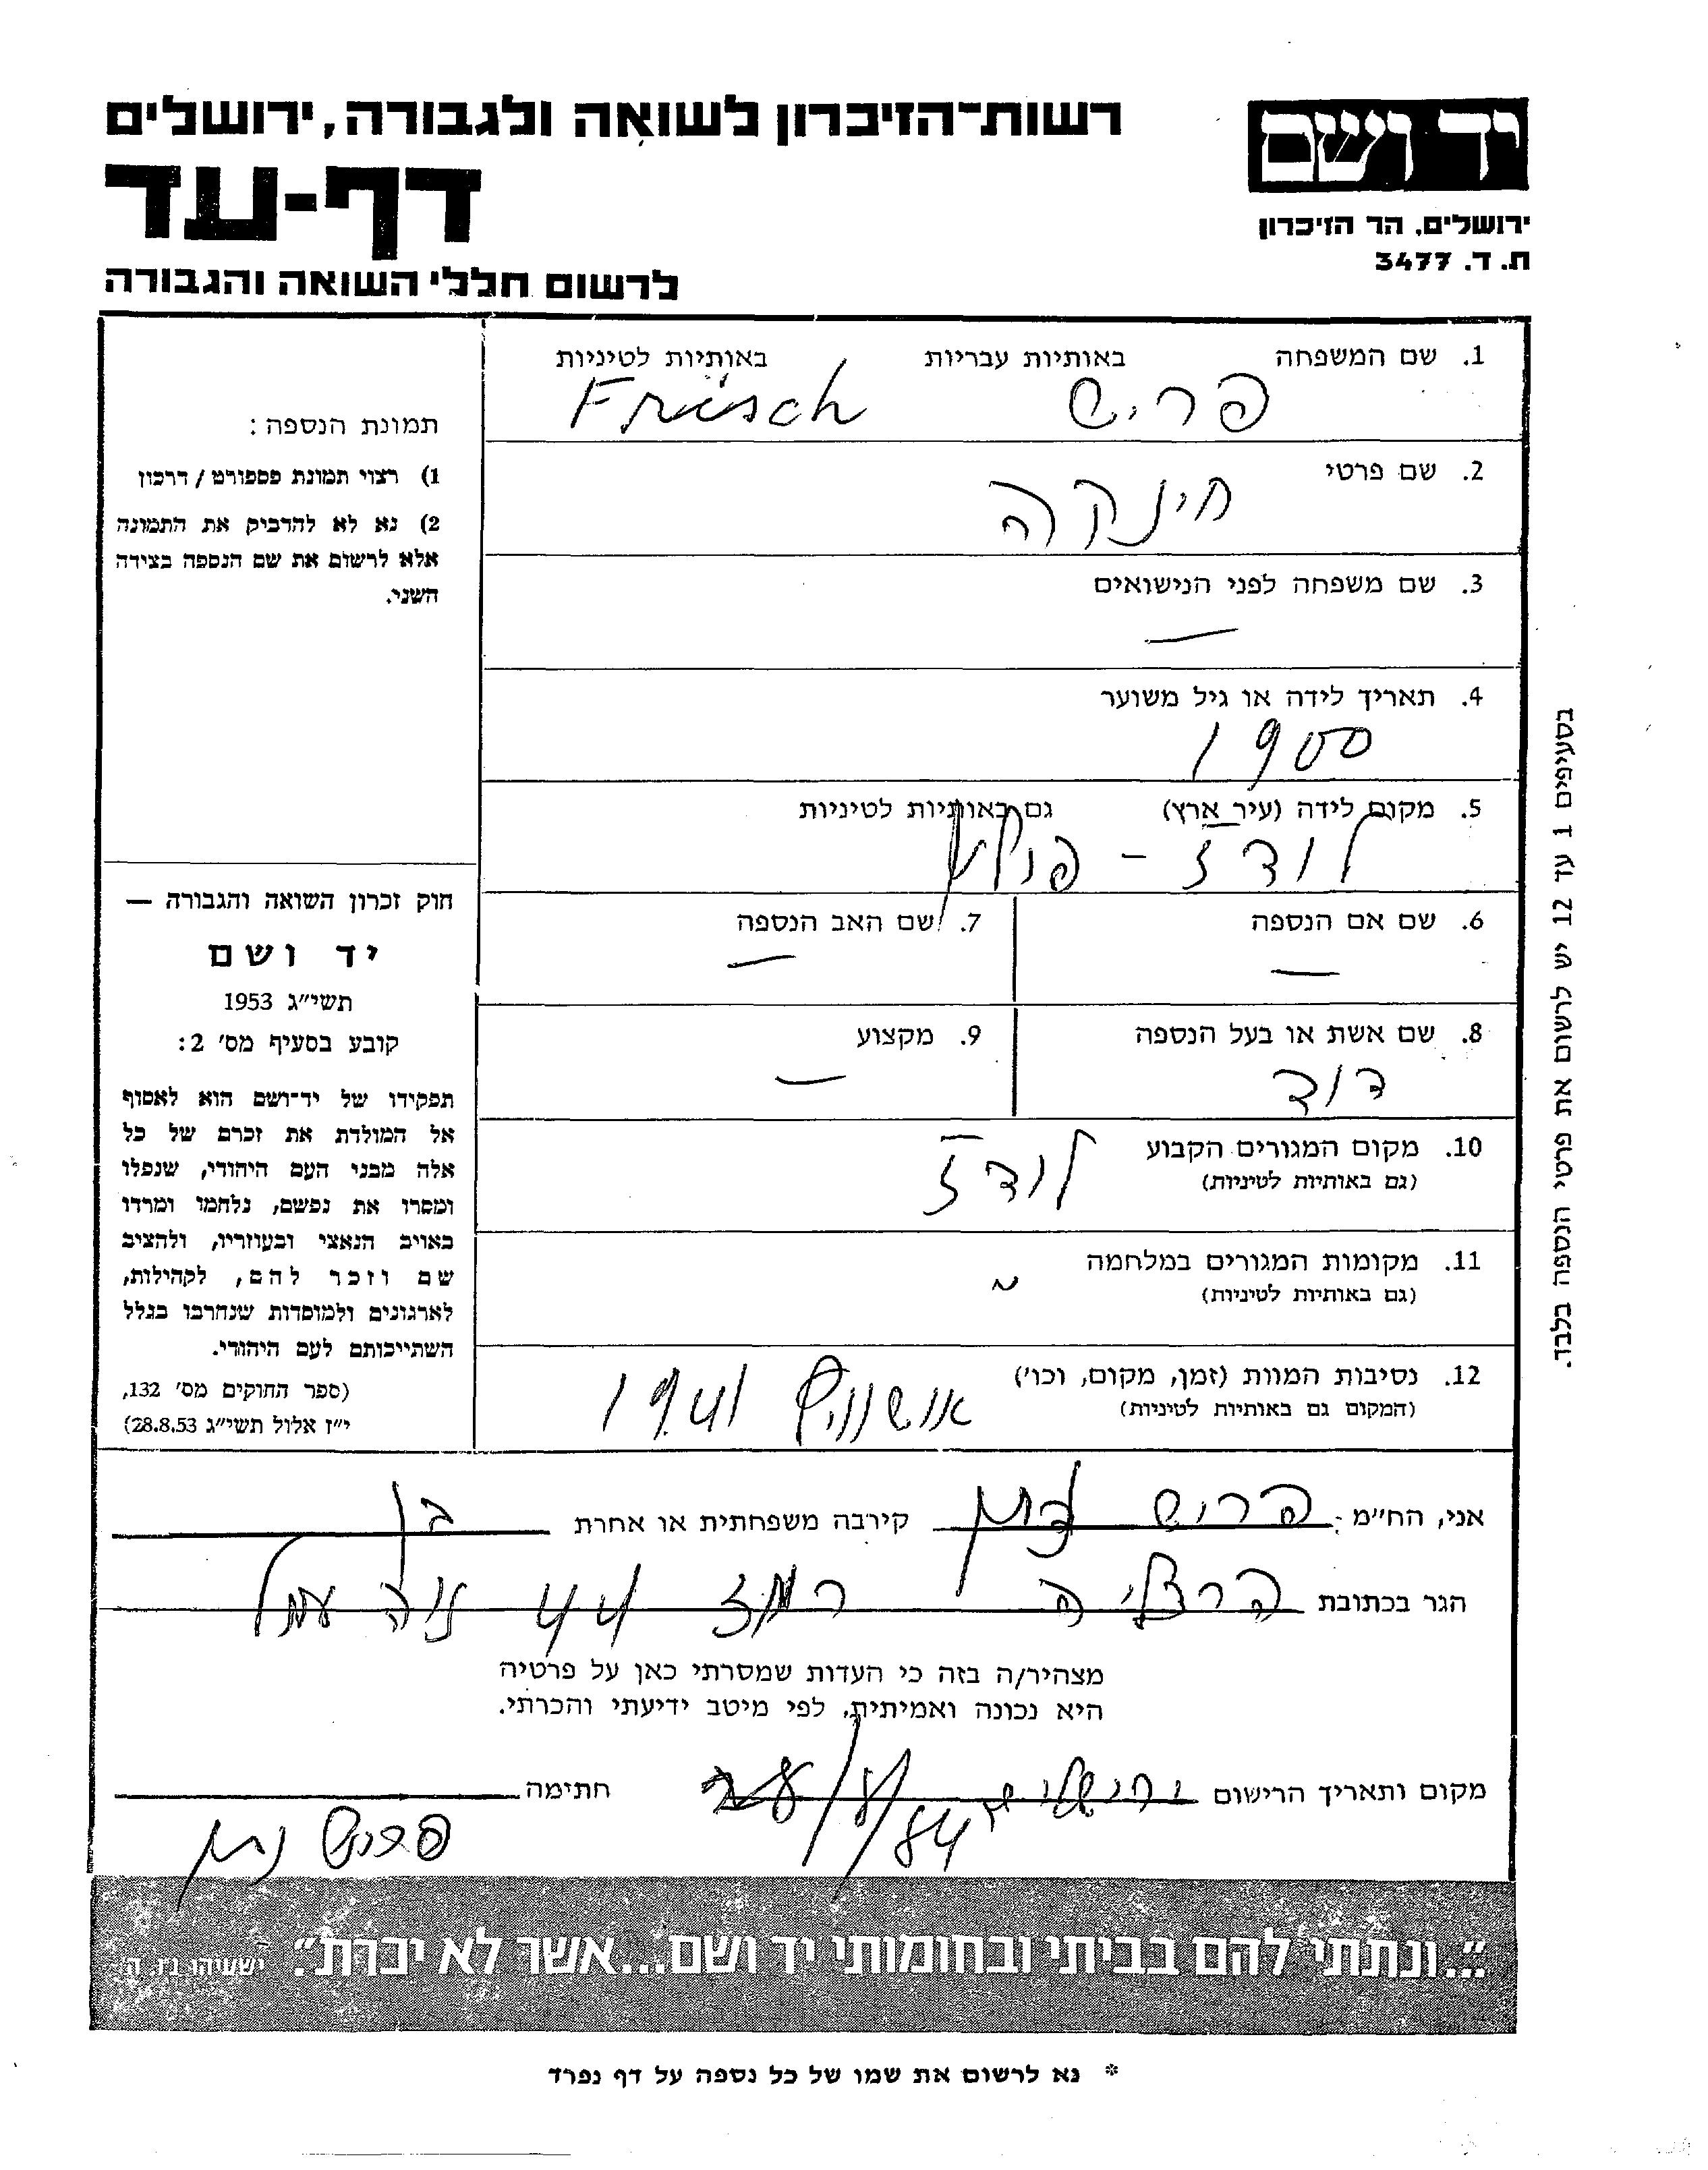 רשות־הזיכרון לשואה ולגבורה, ירושלים
דף-עד
לרשום חללי השואה והגבורה
יד ושם
ירושלים, הר הזיכרון
ת. ד. 3477
1. שם המשפחה באותיות עבריות באותיות לטיניות
פריש Frisch
2. שם פרטי
חינקה
3. שם משפחה לפני הנישואים
—
4. תאריך לידה או גיל משוער
1900
5. מקום לידה (עיר ארץ) גם באותיות לטיניות
לודז - פולין
6. שם אם הנספה 7. שם האב הנספה
— —
8. שם אשת או בעל הנספה 9. מקצוע
דוד —
10. מקום המגורים הקבוע
(גם באותיות לטיניות)
לודז
11. מקומות המגורים במלחמה
(גם באותיות לטיניות)
12. נסיבות המוות (זמן, מקום, וכו')
(המקום גם באותיות לטיניות)
אושוויץ 1941
תמונת הנספה:
1) רצוי תמונת פספורט / דרכון
2) נא לא להדביק את התמונה
אלא לרשום את שם הנספה בצידה
השני.
חוק זכרון השואה והגבורה —
יד ושם
תשי״ג 1953
קובע בסעיף מס' 2:
תפקידו של יד־ושם הוא לאסוף
אל המולדת את זכרם של כל
אלה מבני העם היהודי, שנפלו
ומסרו את נפשם, נלחמו ומרדו
באויב הנאצי ובעוזריו, ולהציב
שם וזכר להם, לקהילות,
לארגונים ולמוסדות שנחרבו בגלל
השתייכותם לעם היהודי.
(ספר החוקים מס' 132,
י״ז אלול תשי״ג 28.8.53)
בסעיפים 1 עד 12 יש לרשום את פרטי הנספה בלבד.
אני, הח״מ פריש נתן קירבה משפחתית או אחרת בן
הגר בכתובת הרצליה רמז 44 נוה עמל
מצהיר/ה בזה כי העדות שמסרתי כאן על פרטיה
היא נכונה ואמיתית, לפי מיטב ידיעתי והכרתי.
מקום ותאריך הרישום 84 חתימה
פריש נתן
״...ונתתי להם בביתי ובחומותי יד ושם...אשר לא יכרת״. ישעיהו נ״ו, ה
* נא לרשום את שמו של כל נספה על דף נפרד